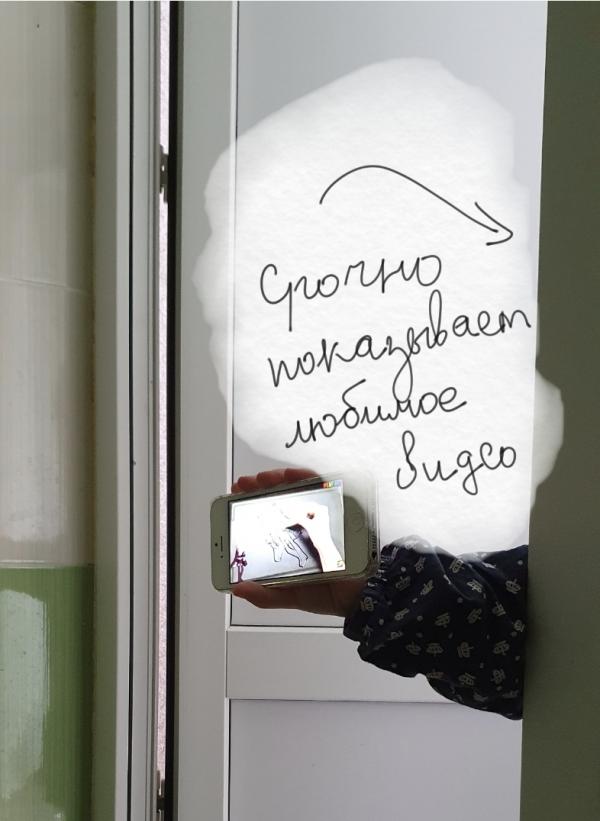 Срочно
показывает
любимое
видео